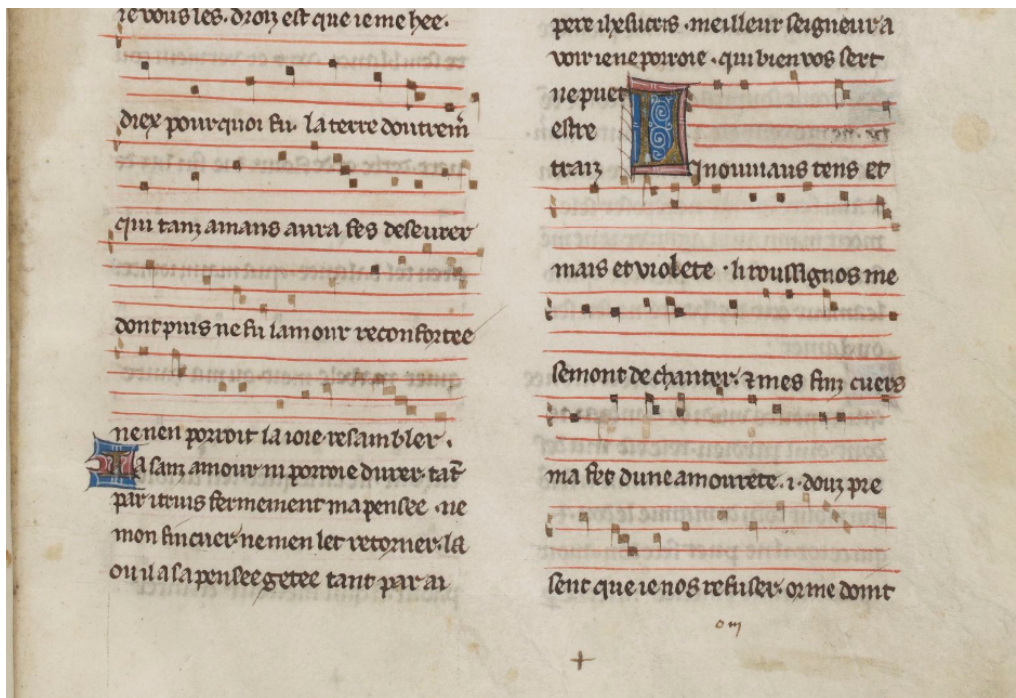 ie vous les. droiz est que ie me hee.
diex pourquoi fu la terre doutrem̄
qui tanz amans aura fes deseurer
dont puis ne fu lamour reconfortee
ne nen porroit la ioie resambler.
Ia sanz amour ni porroie durer. tāt
par i truis fermement ma pensee. ne
mon fin cuer. ne men let retorner. la
ou il a sa pensee getee tant par ai
pere ihesucris. meilleur seigneur a
voir ie ne porroie. qui bien vos sert
ne puet
estre
traiz
Li nouviaus tens et
mais et violete. li roussignos me
semont de chanter. ⁊ mes finz cuers
ma fet dune amourete. i. douz pre
sent que ie nos refuser. or me doint